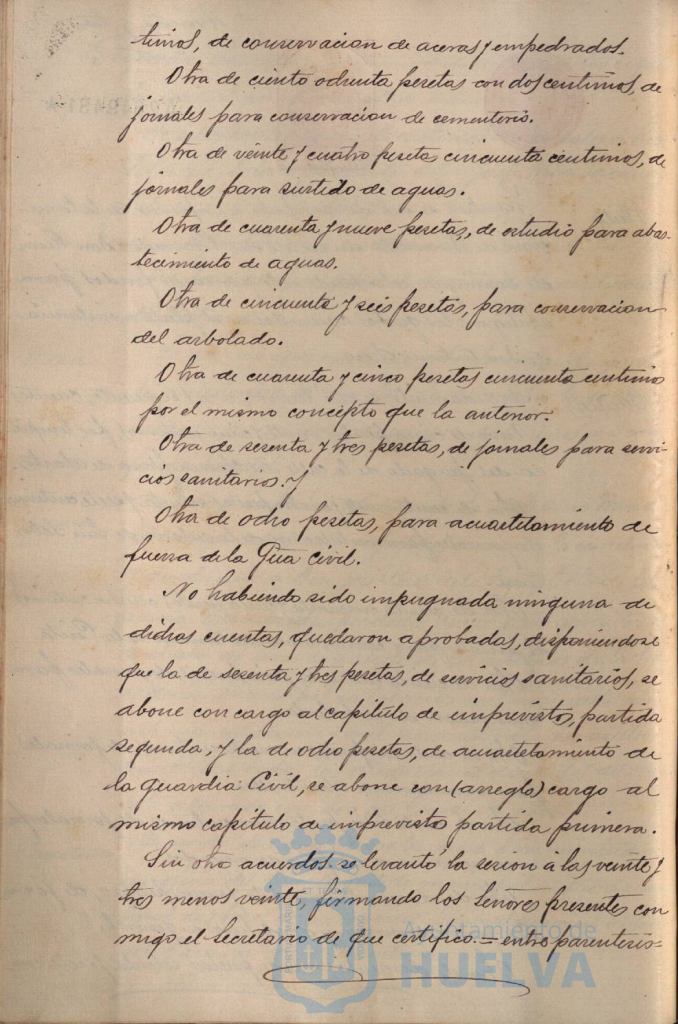 timos, de conservacion de aceras y empedrados.
Otra de ciento ochenta pesetas con dos centimos, de
jornales para conservacion de cementerio.
Otra de veinte y cuatro pesetas cincuenta centimos, de
jornales para surtido de aguas.
Otra de cuarenta y nueve pesetas, de estudio para abas-
tecimiento de aguas.
Otra de cincuenta y seis pesetas, para conservacion
del arbolado.
Otra de cuarenta y cinco pesetas cincuenta centimos
por el mismo concepto que la anterior.
Otra de sesenta y tres pesetas, de jornales para servi-
cios sanitarios. y
Otra de ocho pesetas, para acuartelamiento de
fuerza de la Gua civil.
No habiendo sido impugnada ninguna de
dichas cuentas, quedaron aprobadas, disponiendose
que la de sesenta y tres pesetas, de servicios sanitarios, se
abone con cargo al capitulo de imprevistos, partida
segunda, y la de ocho pesetas, de acuartelamiento de
la guardia Civil, se abone con (arreglo) cargo al
mismo capitulo de imprevisto partida primera.
Sin otro acuerdos se levantó la sesion á las veinte y
tres menos veinte, firmando los Señores presentes con
migo el Secretario de que certifico. = entre parentesis=
Ayuntamiento de
HUELVA